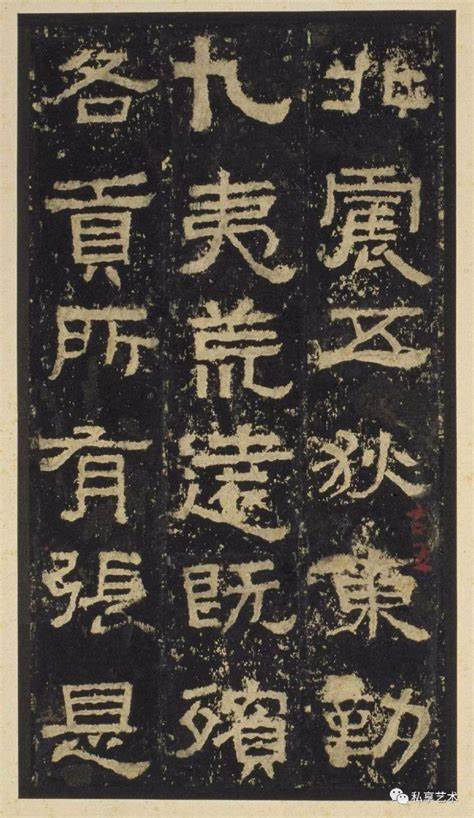 北震五狄東勤
九夷荒遠既殯
各貢所有張是
私享艺术